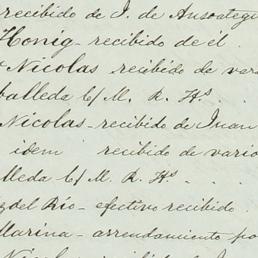 recibido de J. de Ansoategui
Honig - recibido de él.
Nicolas recibido de var
balleda C/ M. R. Hs.
Nicolas - recibido de Juan
idem recibido de vario
lleda C/ M. R. Hs.
del Río - efectivo recibido.
Marina - arrendamiento po